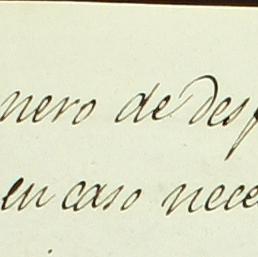 nero de des
en caso nece